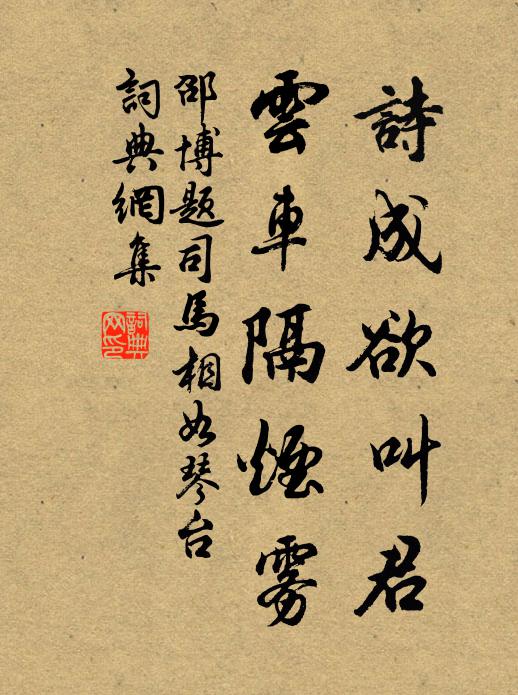 詩成欲叫君
雲車隔煙雾
邵博题司馬相如琴台
詞典網集
詞典网印